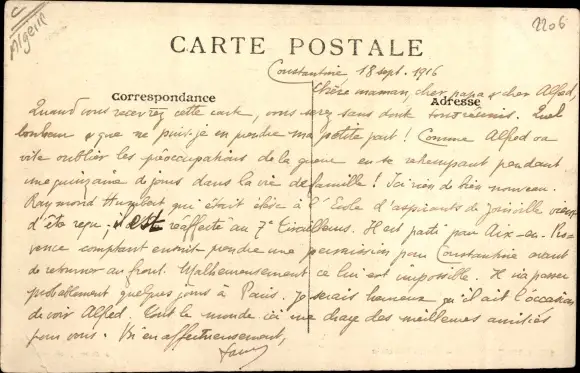 Algérie
2206
CARTE POSTALE
Constantine 18 sept. 1916
Correspondance
Adresse
Chère maman, cher papa & cher Alfred,
Quand vous recevrez cette carte, vous serez sans doute tous réunis. Quel
bonheur & que ne puis-je en prendre ma petite part ! Comme Alfred va
vite oublier les préoccupations de la guerre en se retrempant pendant
une quinzaine de jours dans la vie de famille ! Ici rien de bien nouveau.
Raymond Humbert qui était élève à l'Ecole d'aspirants de Joinville vient
d'être reçu & est réaffecté au 7e Tirailleurs. Il est parti pour Aix-en-Pro-
vence comptant ensuite prendre une permission pour Constantine avant
de retourner au front. Malheureusement ce lui est impossible. Il va passer
probablement quelques jours à Paris. Je serais heureux qu'il ait l'occasion
de voir Alfred. Tout le monde ici me charge des meilleures amitiés
pour vous. Bien affectueusement,